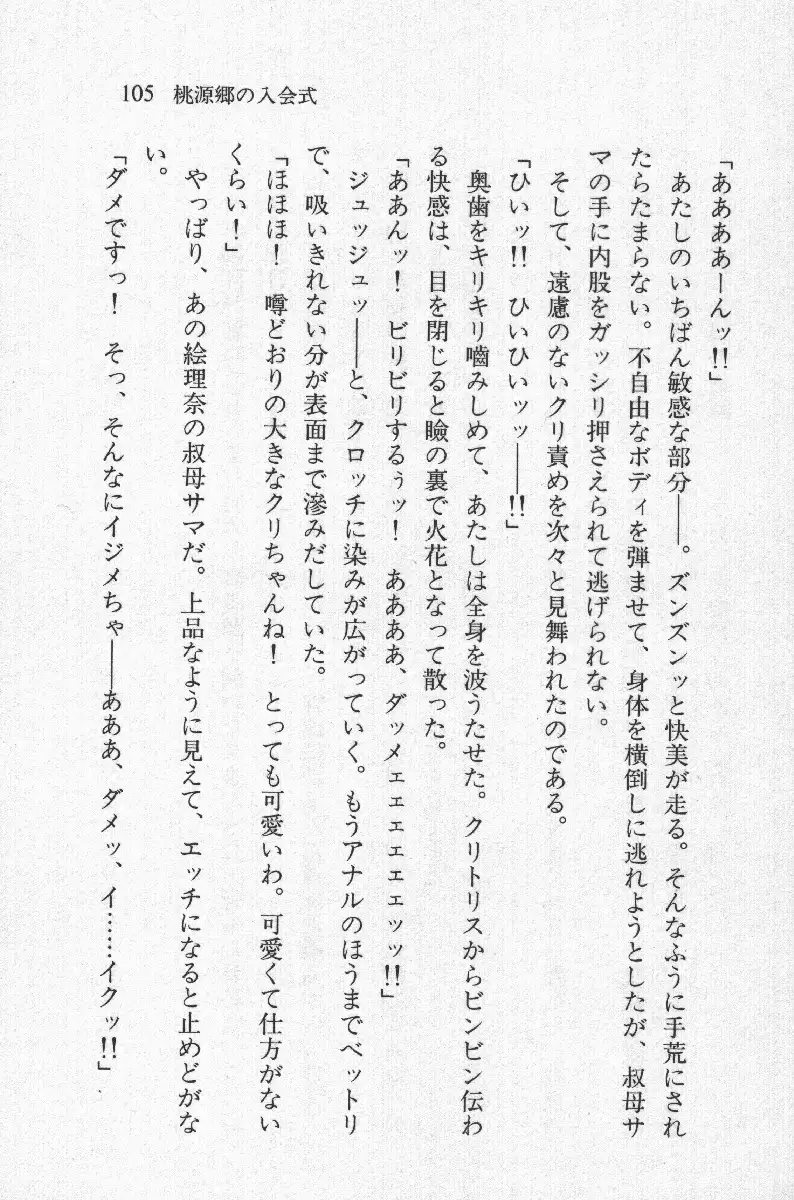 105 桃源郷の入会式
「ああああーんッ!!」
　あたしのいちばん敏感な部分――。ズンズンッと快美が走る。そんなふうに手荒にされ
たらたまらない。不自由なボディを弾ませて、身体を横倒しに逃れようとしたが、叔母サ
マの手に内股をガッシリ押さえられて逃げられない。
　そして、遠慮のないクリ責めを次々と見舞われたのである。
「ひいッ!!　ひいひいッッ――!!」
　奥歯をキリキリ嚙みしめて、あたしは全身を波うたせた。クリトリスからビンビン伝わ
る快感は、目を閉じると瞼の裏で火花となって散った。
「ああんッ！　ビリビリするぅッ！　ああああ、ダッメェェェェェェッッ!!」
　ジュッジュッ――と、クロッチに染みが広がっていく。もうアナルのほうまでベットリ
で、吸いきれない分が表面まで滲みだしていた。
「ほほほ！　噂どおりの大きなクリちゃんね！　とっても可愛いわ。可愛くて仕方がない
くらい！」
　やっぱり、あの絵理奈の叔母サマだ。上品なように見えて、エッチになると止めどがな
い。
「ダメですっ！　そっ、そんなにイジメちゃ――あああ、ダメッ、イ……イクッ!!」